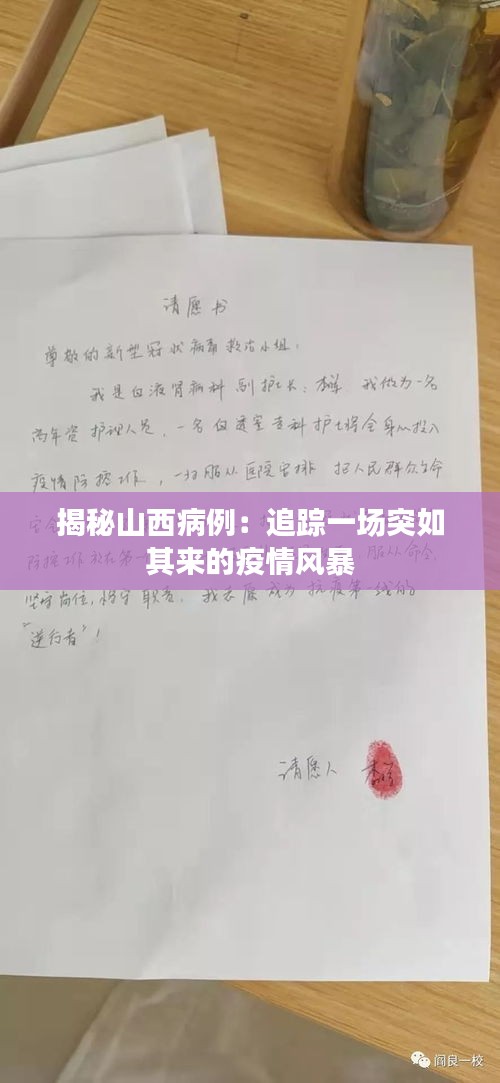 请愿书
尊敬的新型冠状病毒救治小组:
我是血液肾病科 副护士长:李 我做为一名
高年资护理人员,一名血透室专科护士将全身心投入
疫情防控工作,一切服从医院安排 把人民群众生命
揭秘山西病例：追踪一场突如
其来的疫情风暴
防控工作 第一 服从命令,
坚守岗位,恪守职责。我志愿成为抗疫第一线的
"逆行者"!
请愿人 李
阎良一校